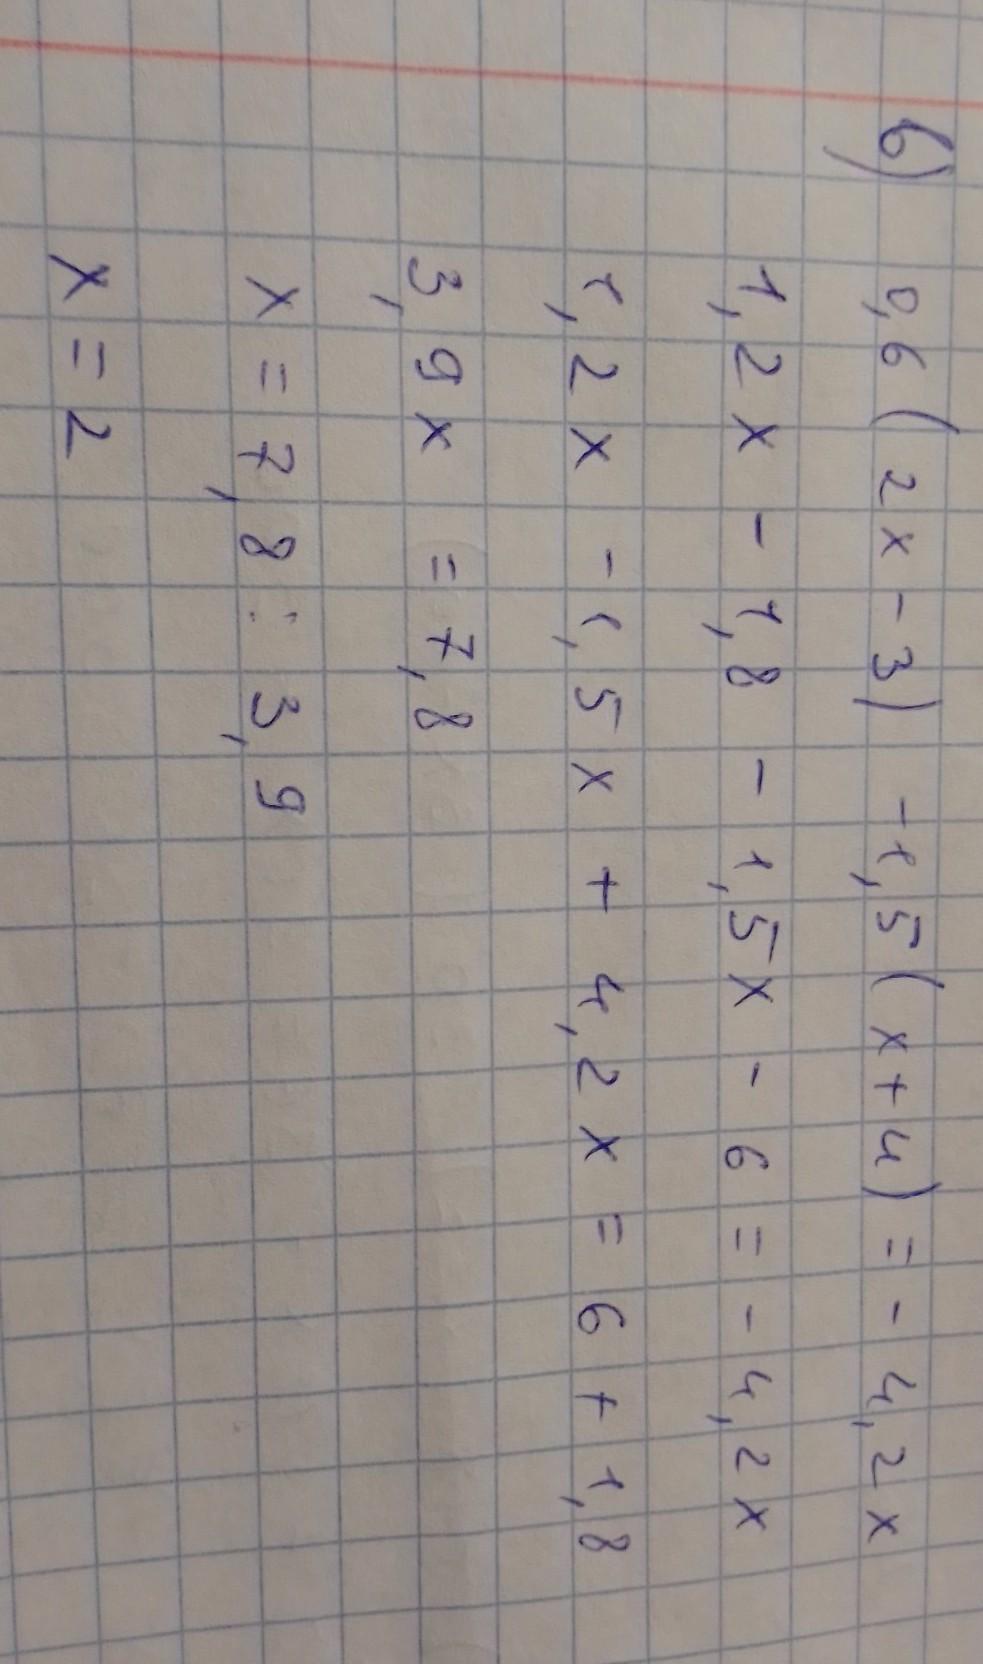 б) 0,6(2x-3) -1,5(x+4) = -4,2x
1,2x - 1,8 - 1,5x - 6 = -4,2x
1,2x - 1,5x + 4,2x = 6+1,8
3,9x = 7,8
x = 7,8 : 3,9
x = 2